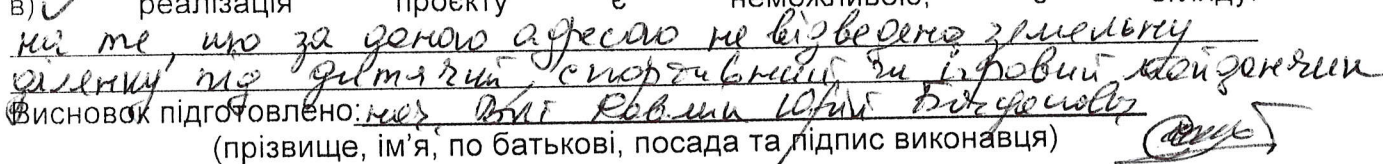 в) реалізація проєкту є неможливою, з огляду:
на те, що за даною адресою не відведено земельну
ділянку під дитячий, спортивний чи ігровий майданчик
Висновок підготовлено: нач Юрій Богданович
(прізвище, ім’я, по батькові, посада та підпис виконавця)